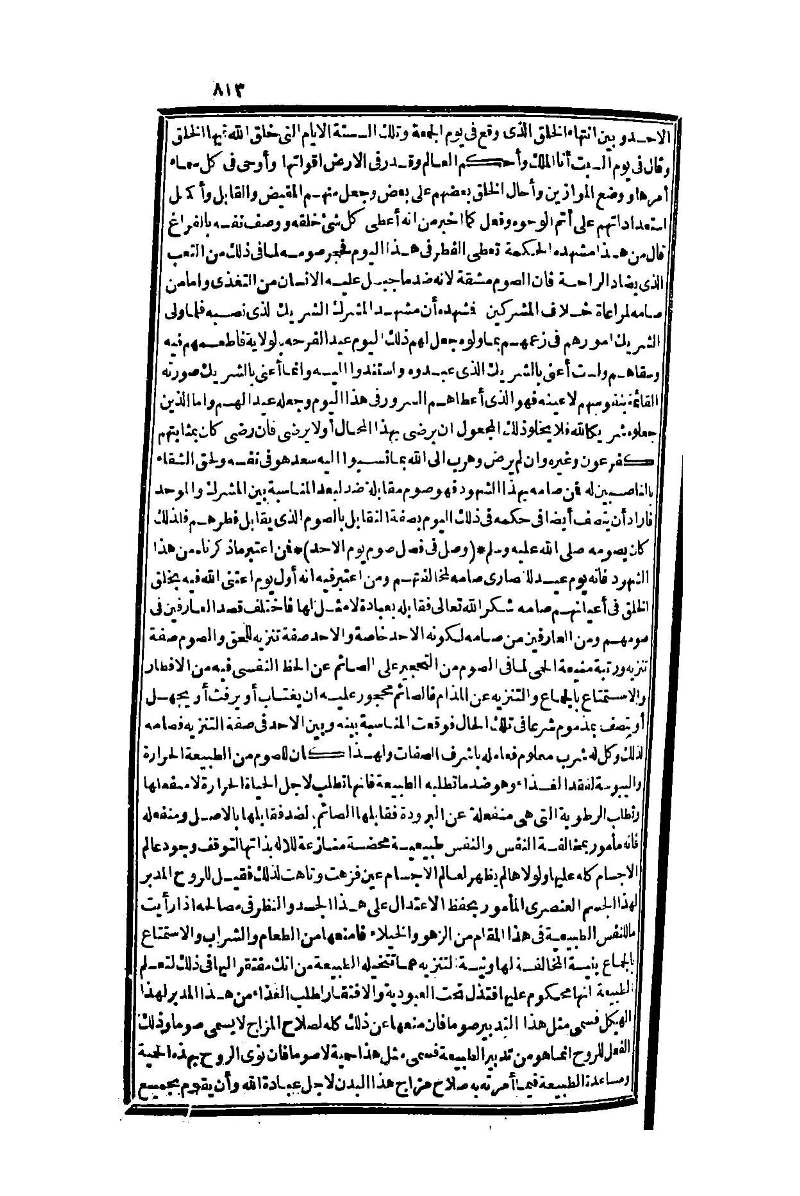 ٨١٣
الاحد وبين انتهاء الخلق الذى وقع فى يوم الجمعة وتلك الستة الايام التى خلق الله فيها الخلق
وقال فى يوم السبت أنا الملك وأحكم العالم وقدر فى الارض اقواتها وأوحى فى كل سماء
أمرها ووضع الموازين وأحال الخلق بعضهم على بعض وجعل منهم المفيض والقابل وأكمل
استعداداتهم على أتم الوجوه وفعل كما اخبر من انه أعطى كل شئ خلقه ووصف نفسه بالفراغ
قال من هذا مشهده الحكمة تعطى الفطر فى هذا اليوم فحجر صومه لما فى ذلك من التعب
الذى يضاد الراحة فان الصوم مشقة لانه ضد ما جبل عليه الانسان من التغذى واما من
صامه لمراعاة خلاف المشركين فشهده أن مشهد المشرك الشريك الذى نصبه فلما ولى
الشريك امورهم فى زعمهم بما ولوه جعل لهم ذلك اليوم عيد الفرحه بالولاية فاطعمهم فيه
وسقاهم ولست أعنى بالشريك الذى عبدوه واستندوا اليه وانما أعنى بالشريك صورته
القائمة بنفوسهم لا عينه فهو الذى أعطاهم السرور فى هذا اليوم وجعله عيدا لهم واما الذين
جعلوه شريكا لله فلا يخلو ذلك المجعول ان يرضى بهذا المحال أو لا يرضى فان رضى كان بمثابتهم
كفرعون وغيره وان لم يرض وهرب الى الله بما نسبوا اليه سعد هو فى نفسه ولحق الشقاء
بالناصبين له فمن صامه بهذا الشهود فهو صوم مقابلة ضد لبعد المناسبة بين المشرك والموحد
فاراد أن يتصف أيضا فى حكمه فى ذلك اليوم بصفة التقابل بالصوم الذى يقابل فطرهم فلذلك
كان يصومه صلى الله عليه وسلم *(وصل فى فصل صوم يوم الاحد)* فمن اعتبر ما ذكرناه من هذا
الشهود فانه يوم عيد للنصارى صامه لمخالفتهم ومن اعتبر فيه انه أول يوم اعتنى الله فيه بخلق
الخلق فى أعيانهم صامه شكرا لله تعالى فقابله بعبادة لا مثل لها فاختلف قصد العارفين فى
صومهم ومن العارفين من صامه لكونه الاحد خاصة والاحد صفة تنزيه للحق والصوم صفة
تنزيه ورتبة منيعة الحمى لما فى الصوم من التحجير على الصائم عن الحظ النفسى فيه من الافطار
والاستمتاع بالجماع والتنزيه عن المذام فالصائم محجور عليه ان يغتاب أو يرفث أو يجهل
أو يتصف بمذموم شرعا فى تلك الحال فوقعت المناسبة بينه وبين الاحد فى صفة التنزيه فصامه
لذلك وكل له شرب معلوم فعامله باشرف الصفات ولهذا كان للصوم من الطبيعة الحرارة
واليبوسة لفقد الغذاء وهو ضد ما تطلبه الطبيعة فانها تطلب لاجل الحياة الحرارة لا منفعلها
وتطلب الرطوبة التى هى منفعلة عن البرودة فقابلها الصائم بالضد فقابلها بالاصل ومنفعله
فانه مأمور بمخالفة النفس والنفس طبيعية محضة منازعة للاله بذاتها لتوقف وجود عالم
الاجسام كله عليها ولولا هى لم يظهر لعالم الاجسام عين فزهت وتاهت لذلك فقيل للروح المدبر
لهذا الجسم العنصرى المأمور بحفظ الاعتدال على هذا الجسد والنظر فى مصالحه اذا رأيت
ما للنفس الطبيعية فى هذا المقام من الزهو والخيلاء فامنعها من الطعام والشراب والاستمتاع
بالجماع بنية المخالفة لها ونية التنزيه عما تتخيله الطبيعة من انك مفتقر اليها فى ذلك لتعلم
الطبيعة انها محكوم عليها فتذل تحت العبودية والافتقار لطلب الغذاء من هذا المدبر لهذا
الهيكل فسمى مثل هذا التدبير صوما فان منعها عن ذلك كله لصلاح المزاج لا يسمى صوما وذلك
الفعل للروح انما هو من تدبير الطبيعة فسمى مثل هذا حمية لا صوما فان نوى الروح بهذه الحمية
ومساعدة الطبيعة فيما أمرته به صلاح مزاج هذا البدن لاجل عبادة الله وأن يقوم بجميع